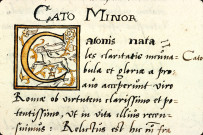 CATO MINOR
Catonis nata-
les claritatis incuna-
bula et gloriæ a pro
auo acceperunt uiro
Cato
Romæ ob uirtutem clarissimo et po-
tentissimo, ut in uita illius recen-
suimus: Relictus est hic